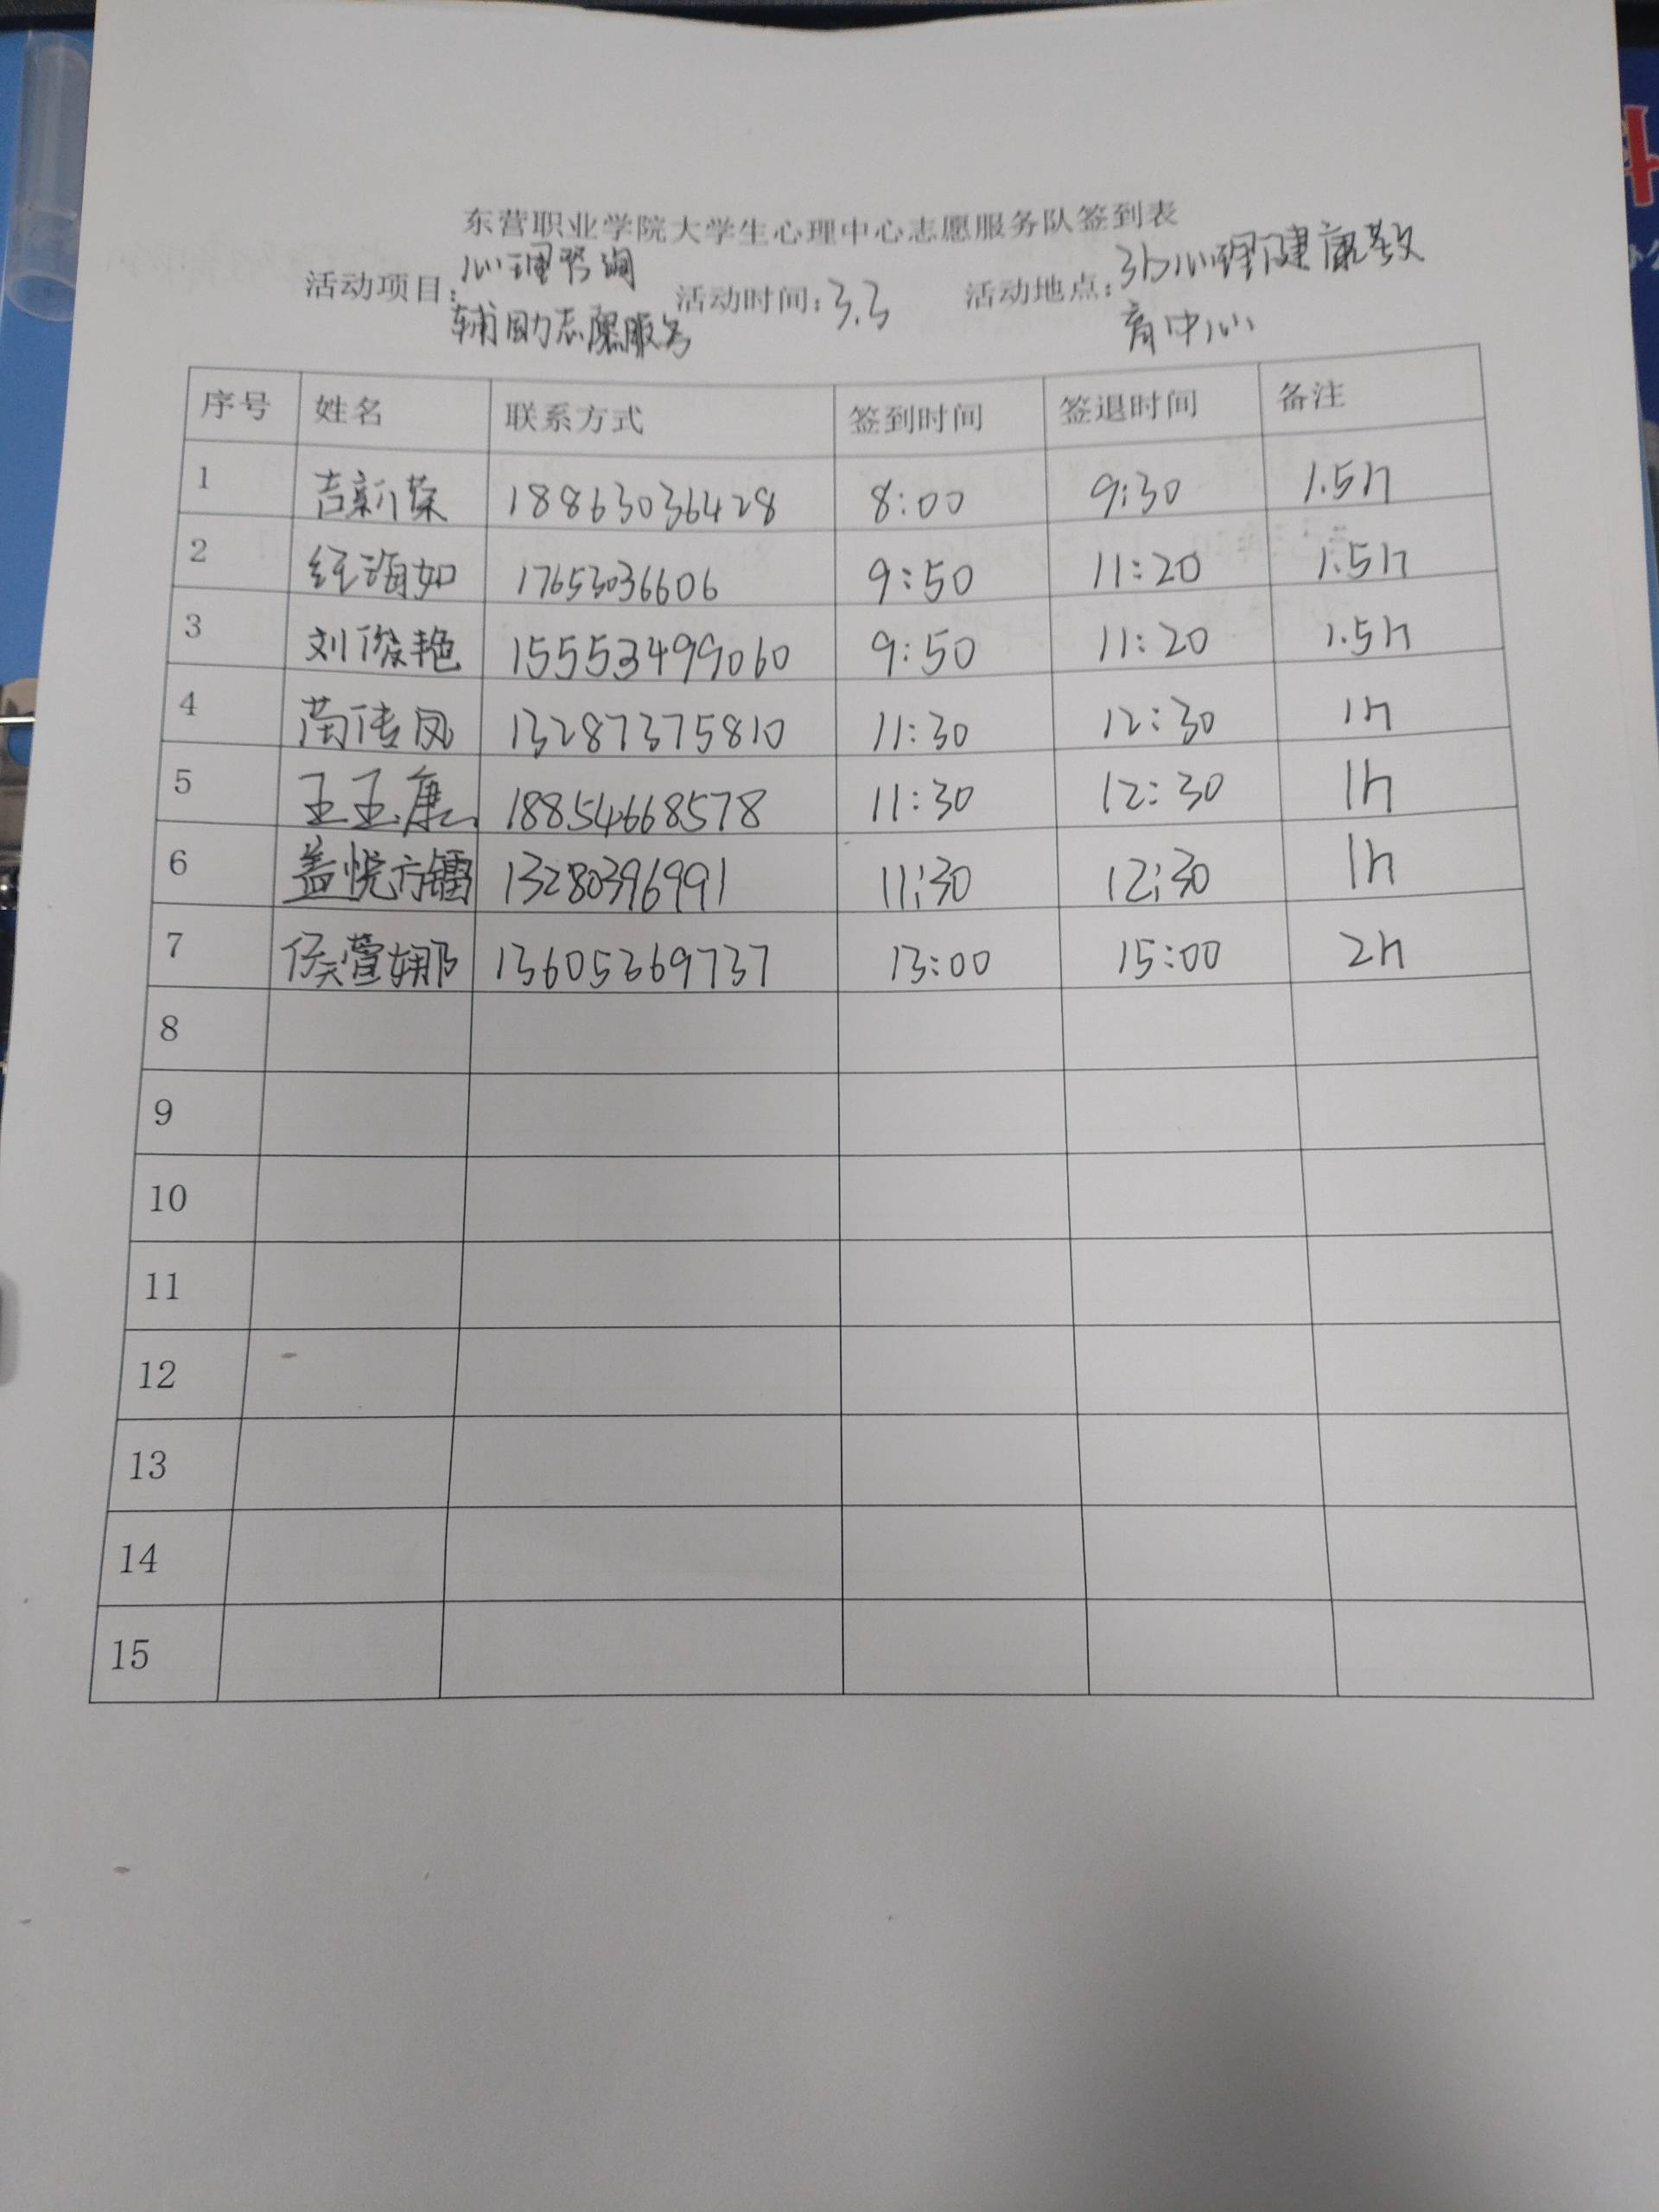 东营职业学院大学生心理中心志愿服务队签到表
活动项目：心理咨询辅助志愿服务 活动时间：3.3 活动地点：心理健康教育中心
序号 姓名 联系方式 签到时间 签退时间 备注
1 吉新荣 18863036428 8:00 9:30 1.5h
2 经海如 17653036606 9:50 11:20 1.5h
3 刘俊艳 15553499060 9:50 11:20 1.5h
4 蔺传凤 13287375810 11:30 12:30 1h
5 王玉康 18854668578 11:30 12:30 1h
6 盖悦方镭 13280396991 11:30 12:30 1h
7 侯萱娜 13605369737 13:00 15:00 2h
8
9
10
11
12
13
14
15